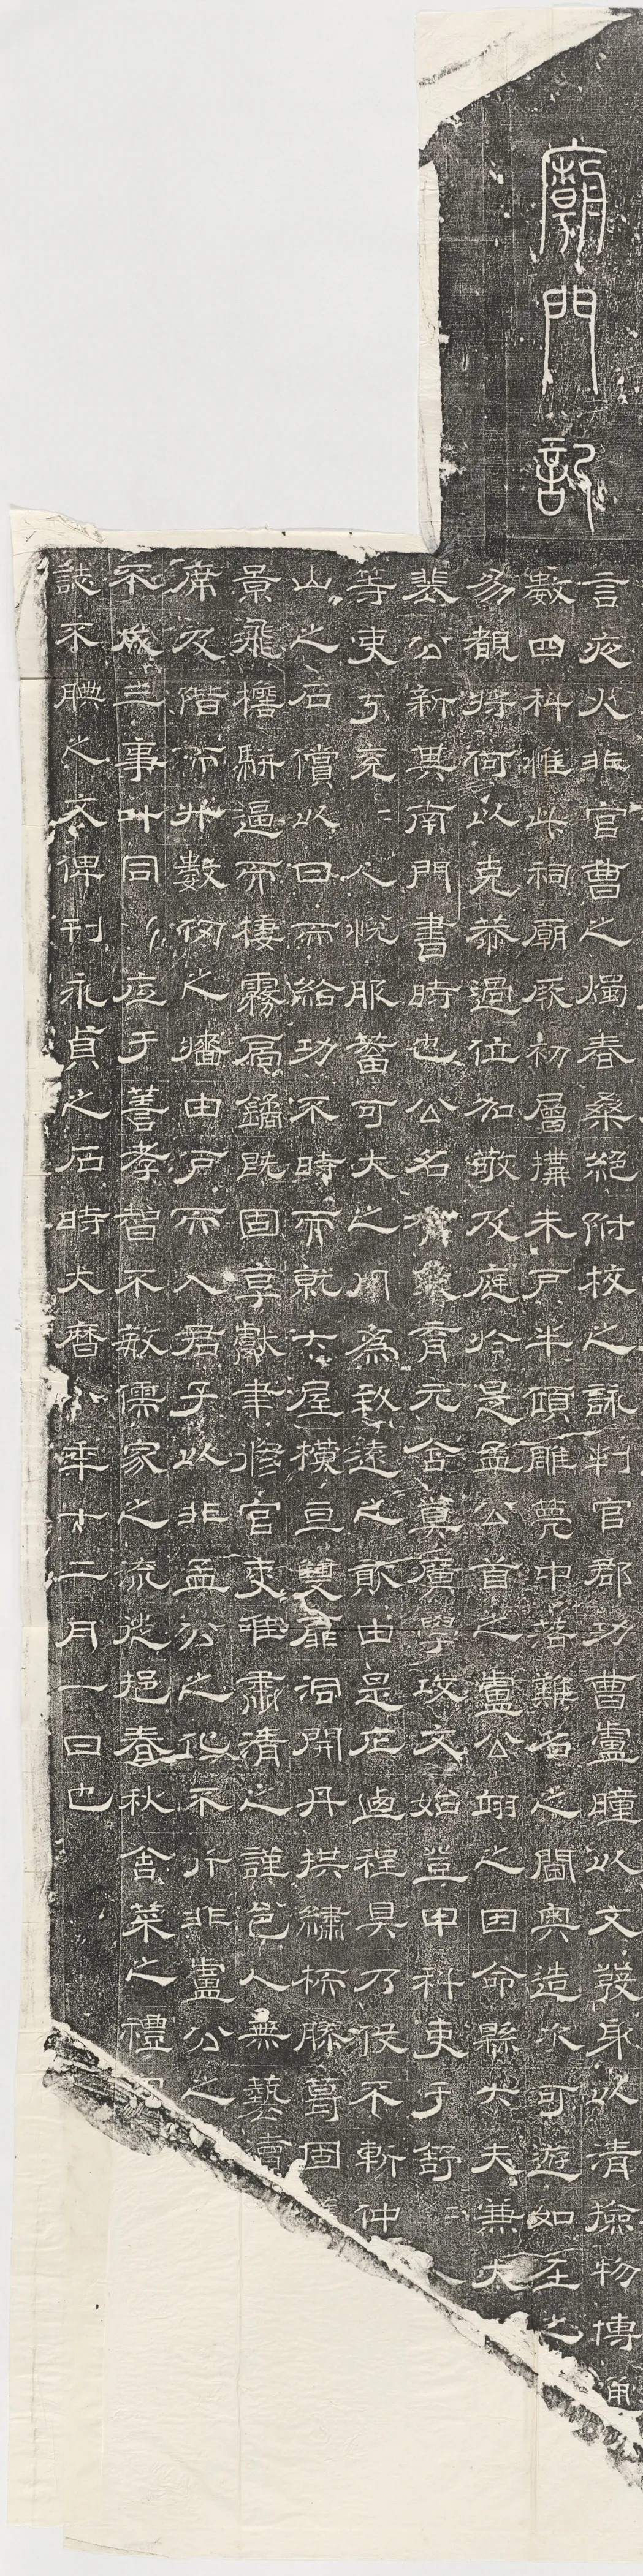 廟門記
言夜火非官曹之燭春桑絕附枝之詠判官郡功曹盧曈以文發身以清撿物博通
數四科惟此祠廟厥初層搆未戶牛頭雕甍中若難名之閫奧造次可遊如在之
易覩將何以克恭過位加敬及庭於是孟公首之盧公翊之因命縣大夫兼大
裴公新其南門書時也公名育元含冀廣學攻文始登甲科吏于舒
等吏于兗二人悅服蓄可大之用為致遠之資由是庀徒程具乃役不斬仲
山之石償以日而給功不時而就大屋橫亘雙扉洞開丹栱繡栭縢葛固
景飛檐駢逼而棲霧扃鐍既固享獻聿修官吏唯肅清之謹邑人無藝
席及階而井數仞之墻由戶而入君子以非孟公之化不行非盧公之
不成三事叶同應于善孝智不敏儒家之流從挹春秋舍菜之禮
誌不腆之文俾刊永貞之石時大曆八年十二月一日也